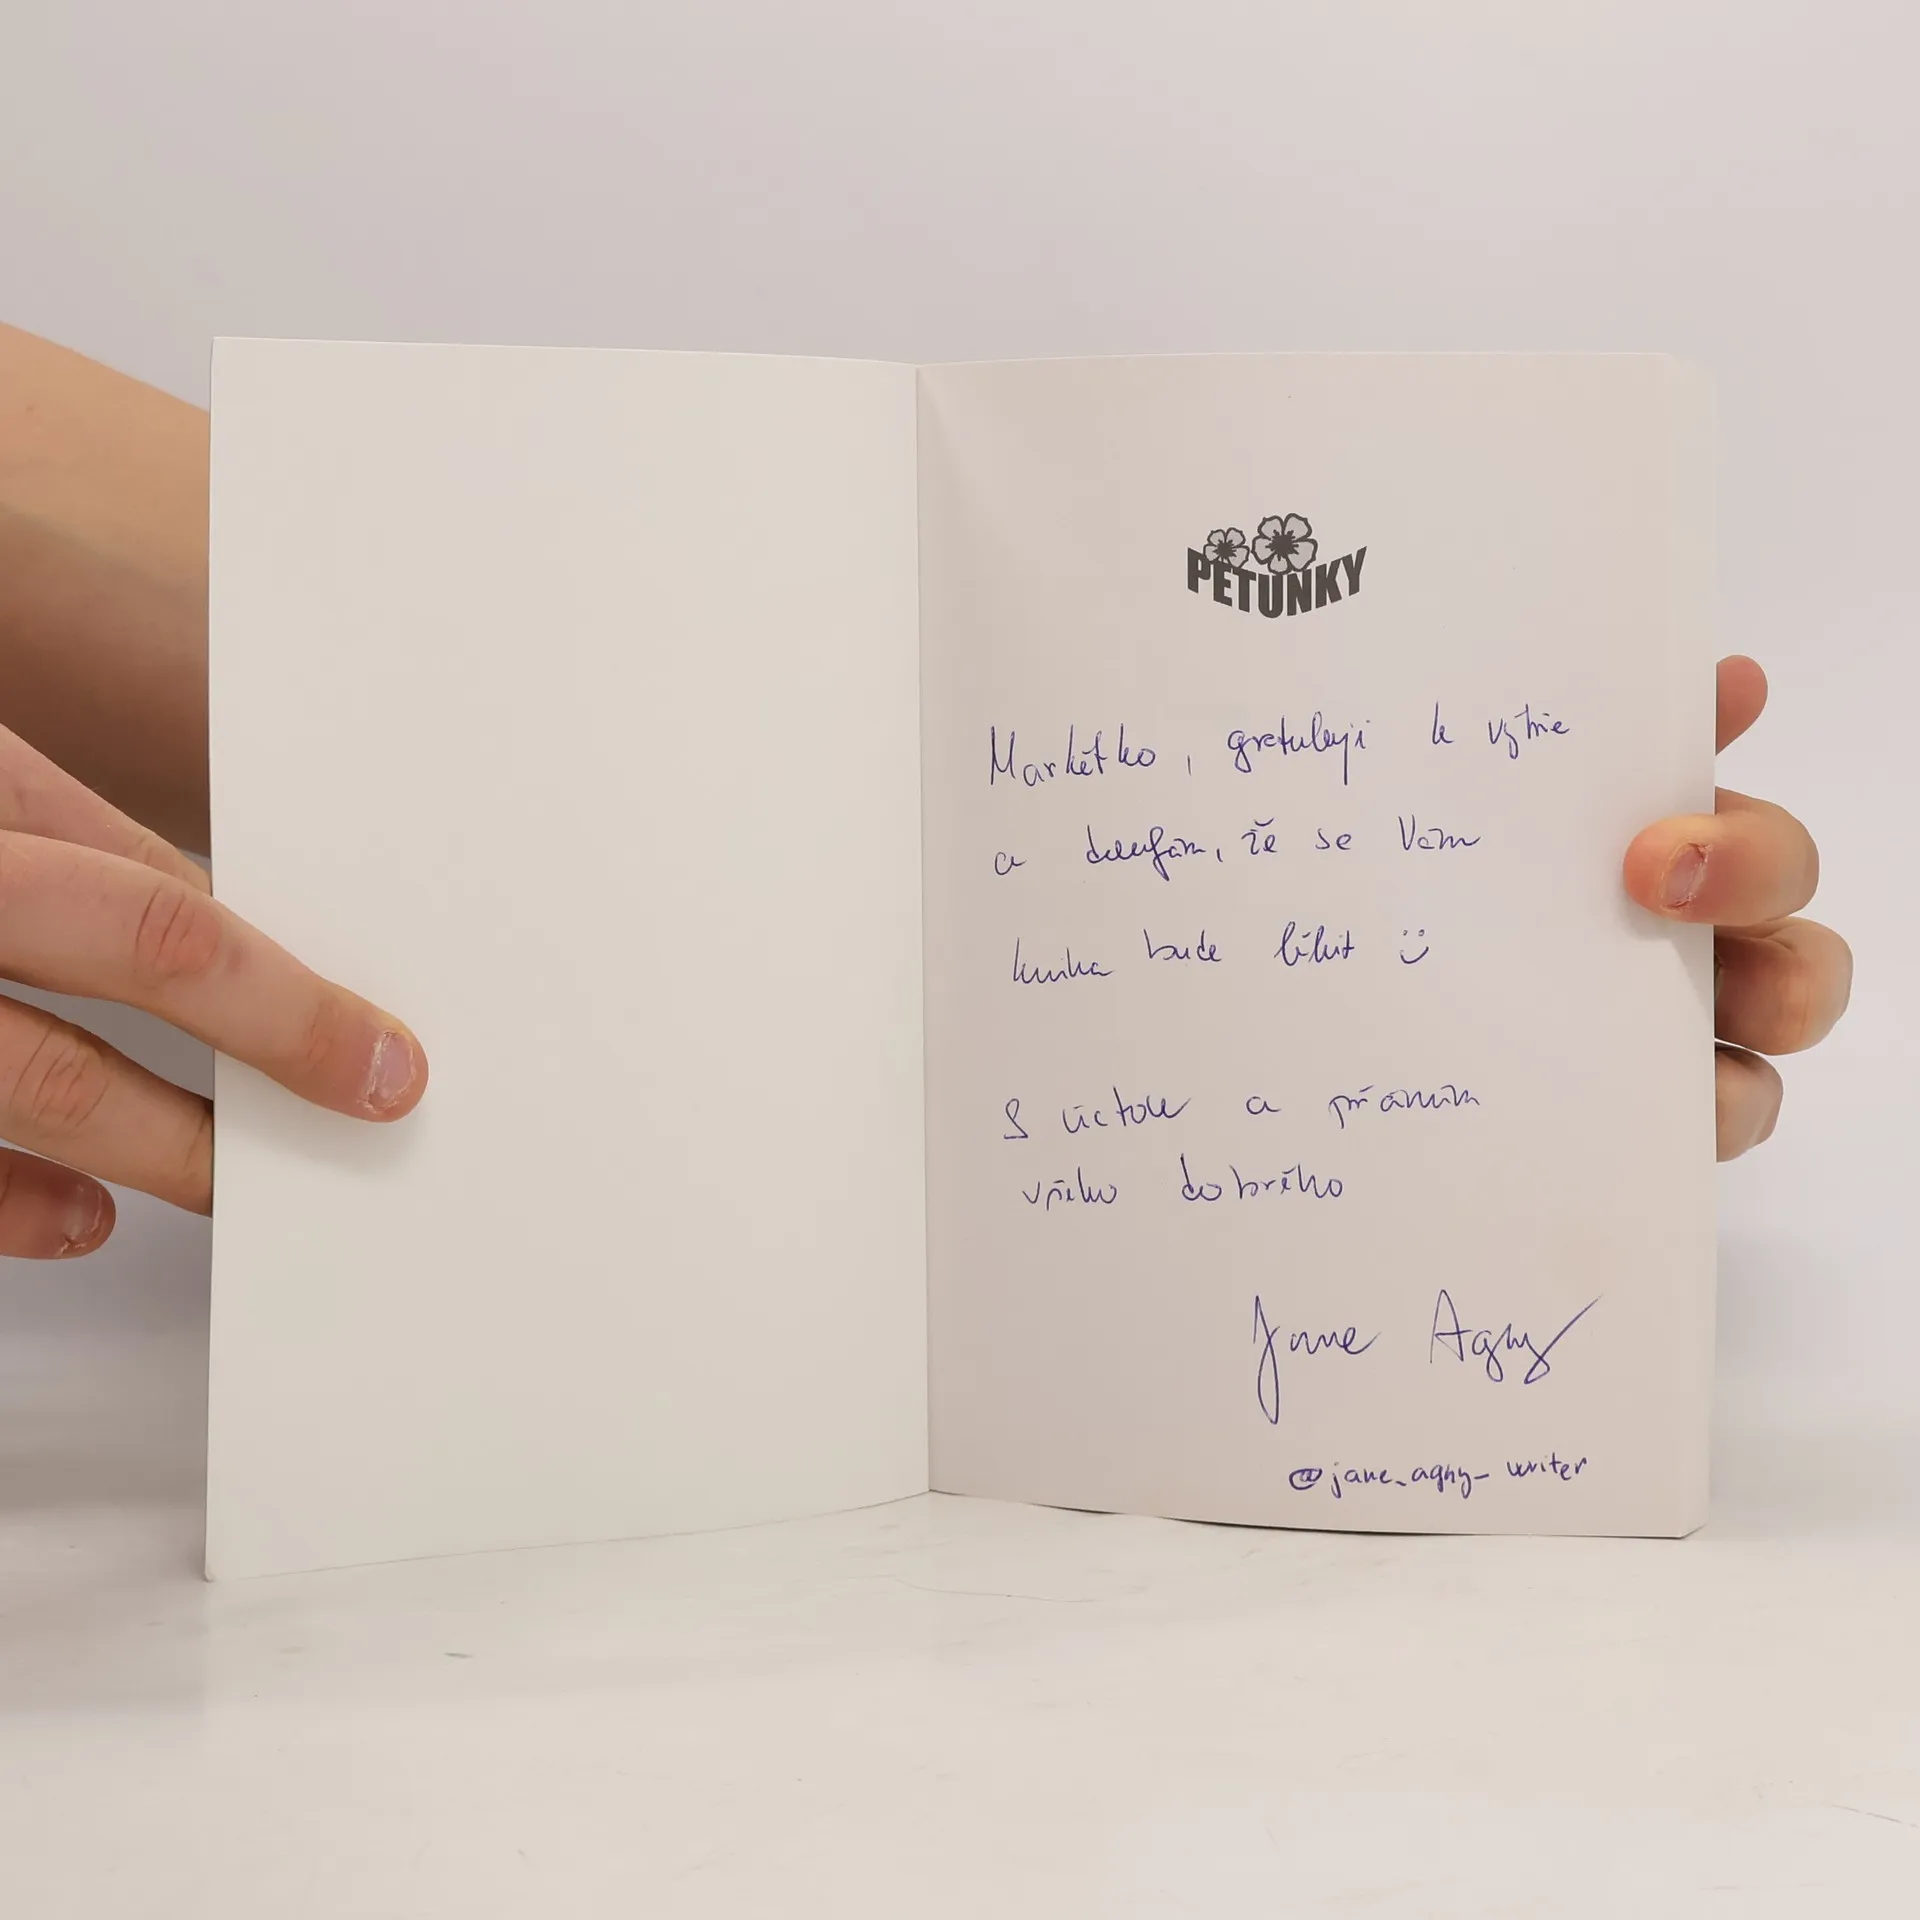 PETUNKY
Markétko, gratuluji k výhře
a doufám, že se Vám
kniha bude líbit :)
S úctou a přáním
všeho dobrého
Jane Agny
@jane_agny_writer